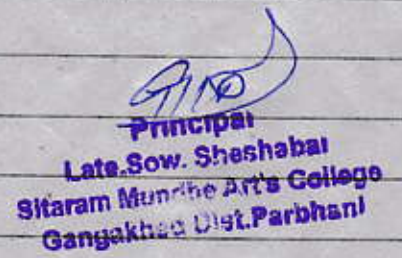 Principal
Late.Sow. Sheshabai
Sitaram Mundhe Art's College
Gangakhed Dist.Parbhani